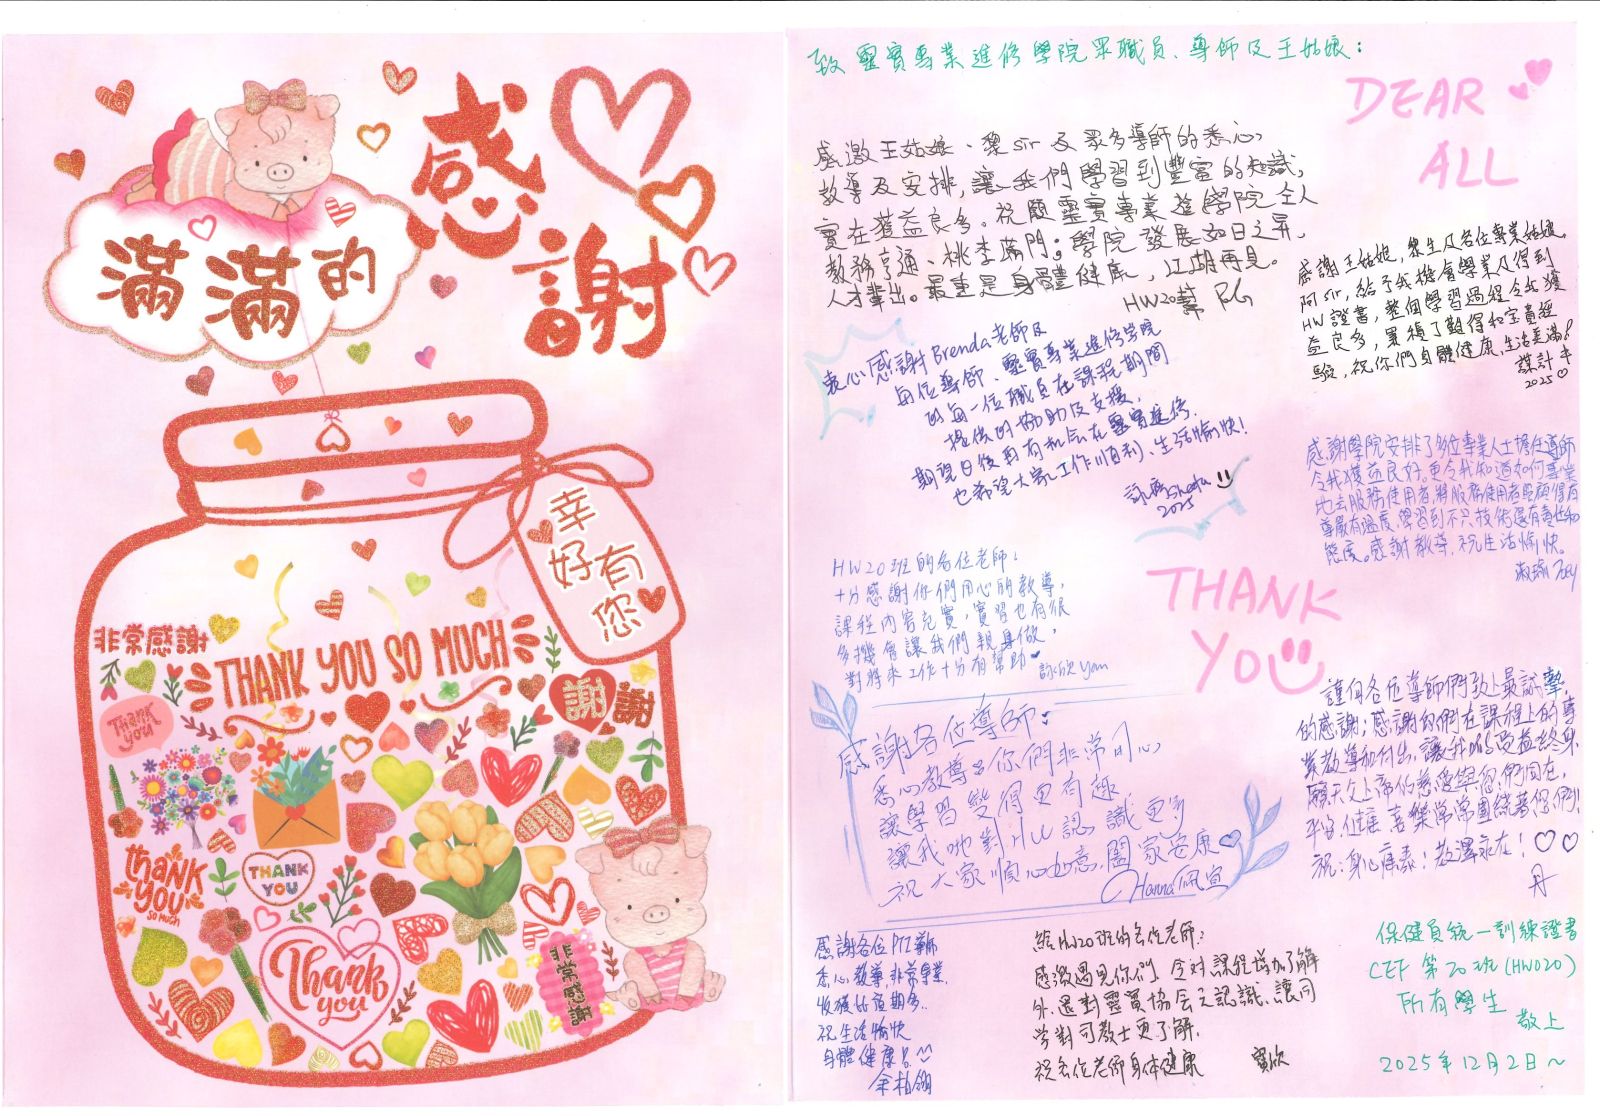 感謝
滿滿的
幸好有您
非常感謝
THANK YOU SO MUCH
Thank you
謝謝
thank you
so much
THANK YOU
Thank you
非常感謝
致 靈實專業進修學院眾職員、導師及王姑娘：
DEAR
ALL
感激王姑娘、黎sir及眾多導師的悉心
教導及安排，讓我們學習到豐富的知識，
實在獲益良多。祝願靈實專業進學院全人
教務亨通、桃李滿門；學院發展如日之昇，
人才輩出。最重是身體健康，江湖再見。
HW20
感謝王姑娘，黎生及各位專業姑娘
阿sir，給予我機會學業及得到
HW證書，整個學習過程令我獲
益良多，累積了難得和宝貴經
驗，祝你們身體健康，生活美滿！
2025
衷心感謝Brenda老師及
每位導師、靈實專業進修學院
的每一位職員在課程期間
提供的協助及支援，
期望日後再有机會在靈實進修.
也希望大家工作順利、生活愉快！
2025
感謝學院安排了多位專業人士擔任導師
令我獲益良好。更令我知道如何專業
地去服務使用者，將服務使用者照顧得有
尊嚴有溫度、學習到不只技術還有責任和
態度。感謝教導，祝生活愉快。
淑瑜 Zoey
HW20班的各位老師：
十分感謝你們用心的教導，
課程內容充實，實習也有很
多機會讓我們親身做，
對將來工作十分有幫助
詠欣 Yan
THANK
YOU
感謝各位導師：
悉心教導，你們非常用心
讓學習變得更有趣
讓我哋對HW認識更多
祝大家順心如意，闔家安康
Hanna佩宜
謹向各位導師們致上最誠摯
的感謝；感謝你們在課程上的專
業教導和付出，讓我哋受益終身.
願天父上帝的慈愛與您們同在，
平安、健康、喜樂常常圍繞著你們！
祝：身心康泰！恩澤永在！
丹
感謝各位PTI導師
悉心教導，非常專業，
收獲比預期多..
祝生活愉快
身體健康！
余柏翎
給HW20班的各位老師：
感激遇見你们，令对課程增加了解
外，還對靈實協会之認識、讓同
学對司教士更了解.
祝各位老师身体健康
寶欣
保健員統一訓練證書
CEF 第20班(HW020)
所有學生
敬上
2025年12月2日～